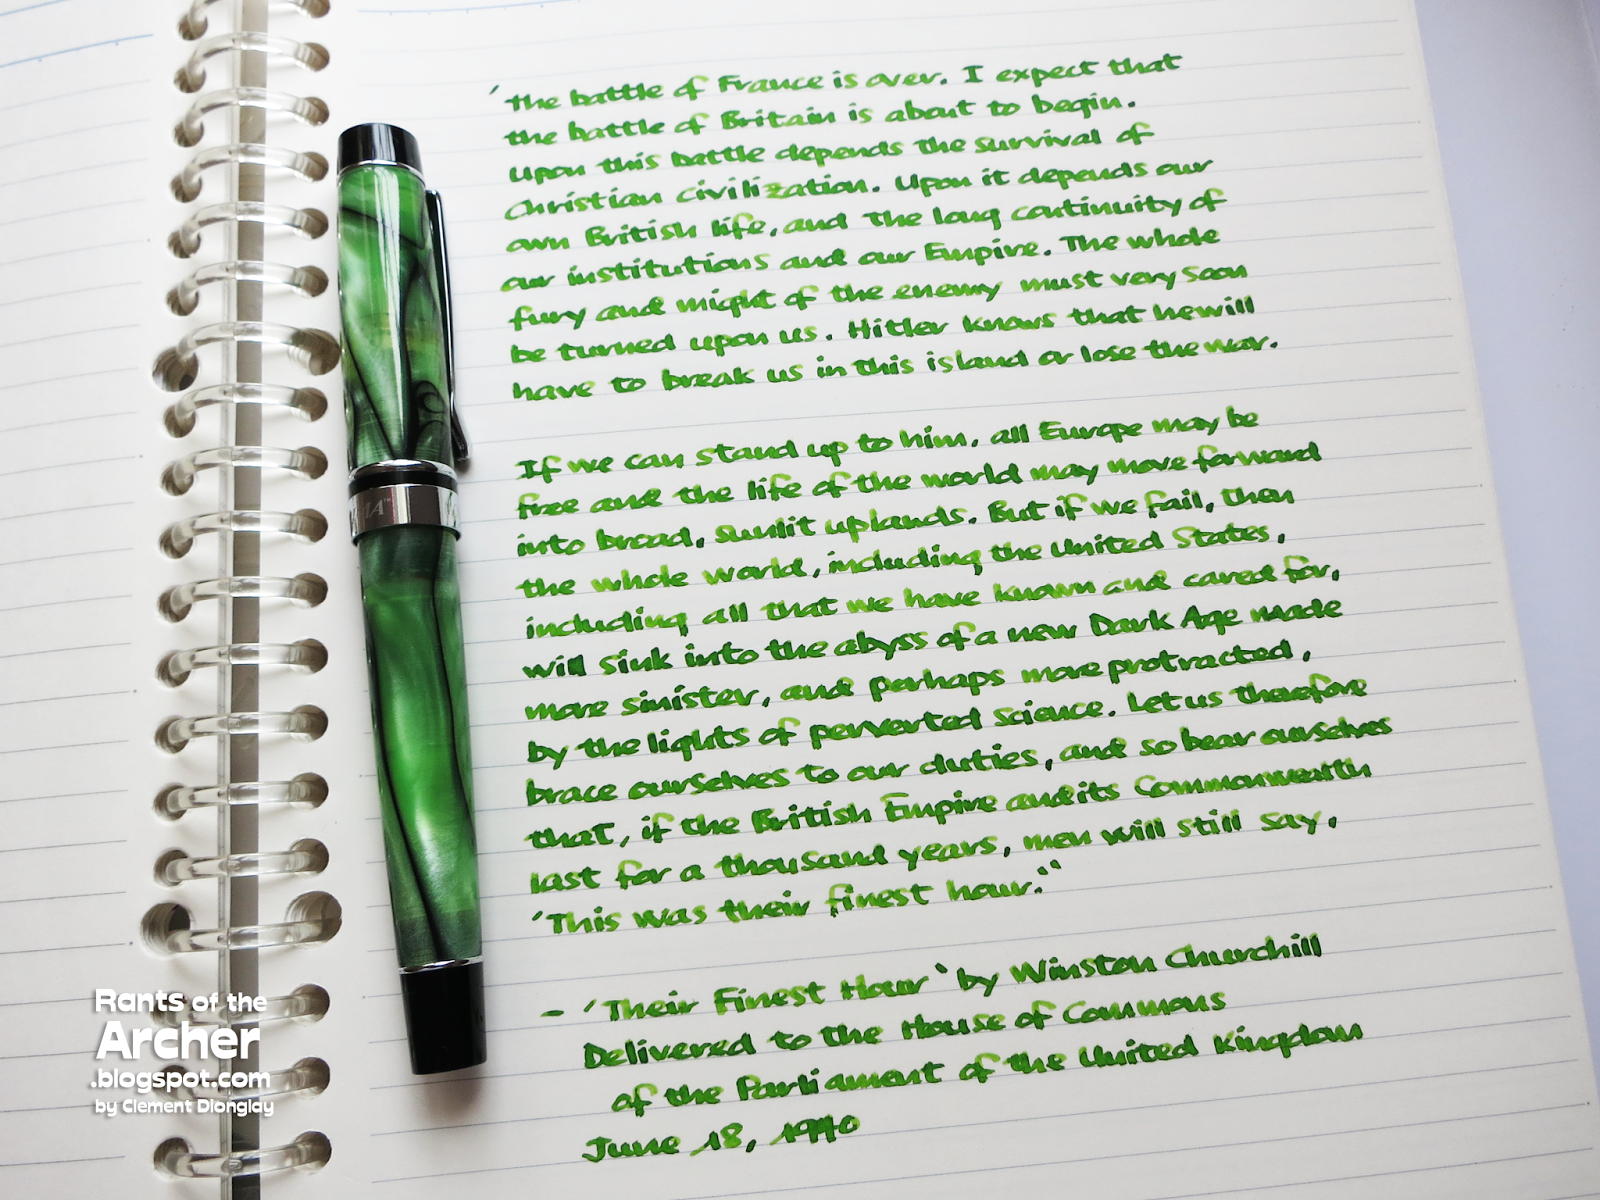 'The battle of France is over. I expect that
the battle of Britain is about to begin.
Upon this battle depends the survival of
Christian civilization. Upon it depends our
own British life, and the long continuity of
our institutions and our Empire. The whole
fury and might of the enemy must very soon
be turned upon us. Hitler knows that he will
have to break us in this island or lose the war.
If we can stand up to him, all Europe may be
free and the life of the world may move forward
into broad, sunlit uplands. But if we fail, then
the whole world, including the United States,
including all that we have known and cared for,
will sink into the abyss of a new Dark Age made
more sinister, and perhaps more protracted,
by the lights of perverted science. Let us therefore
brace ourselves to our duties, and so bear ourselves
that, if the British Empire and its Commonwealth
last for a thousand years, men will still say,
'This was their finest hour.'"
- 'Their Finest Hour' by Winston Churchill
Delivered to the House of Commons
of the Parliament of the United Kingdom
June 18, 1940
Rants of the
Archer
.blogspot.com
by Clement Dionglay